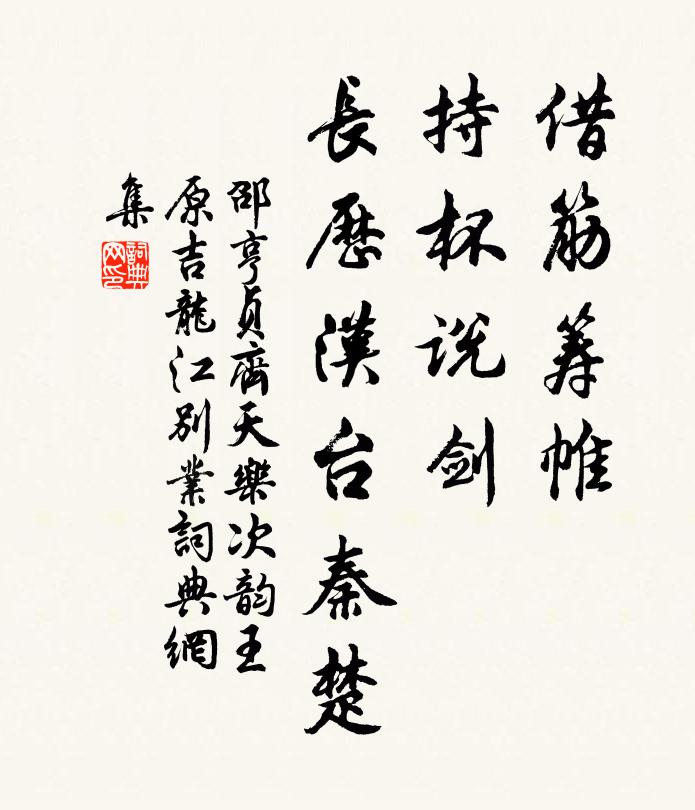 借筋筹帷
持杯说剑
長歷漢台秦楚
邵亨貞齊天樂次韵王
原吉龍江别業詞典網
集
詞典
网印